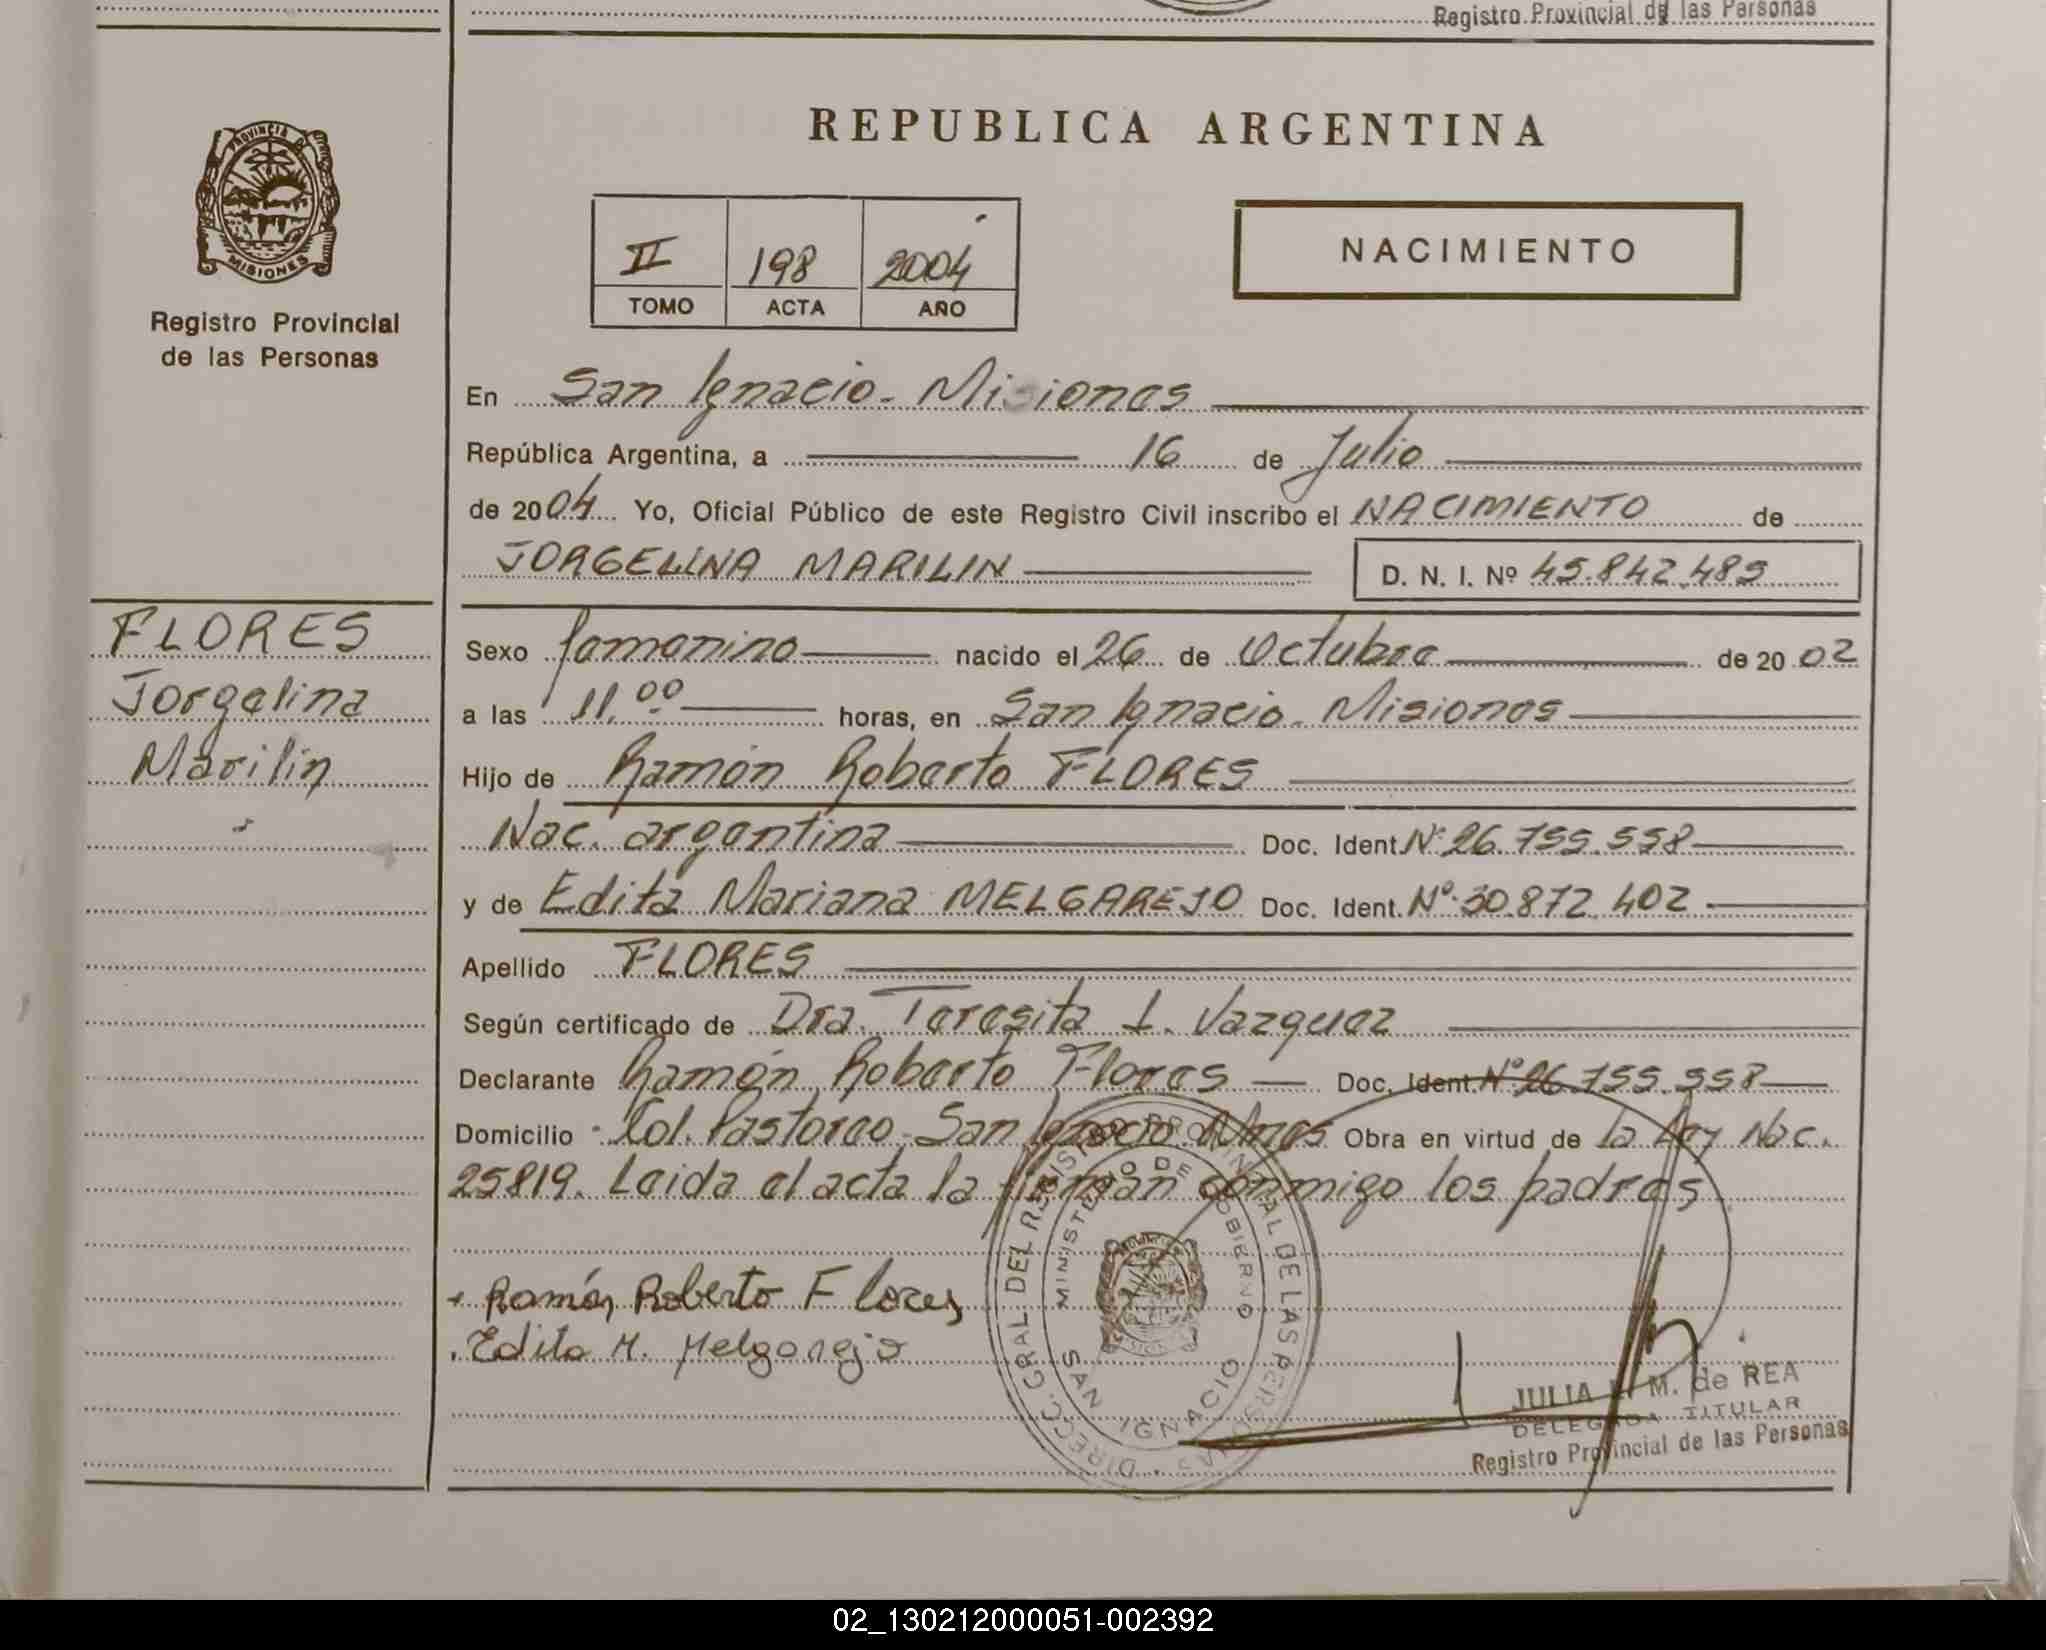 Registro Provincial de las Personas
PROVINCIA DE
MISIONES
Registro Provincial
de las Personas
FLORES
Jorgelina
Marilin
REPUBLICA ARGENTINA
II 198 2004
TOMO ACTA AÑO
NACIMIENTO
En San Ignacio - Misiones
República Argentina, a 16 de Julio
de 2004 Yo, Oficial Público de este Registro Civil inscribo el NACIMIENTO de
JORGELINA MARILIN D. N. I. Nº 45.842.489
Sexo femenino nacido el 26 de Octubre de 2002
a las 11,00 horas, en San Ignacio - Misiones
Hijo de Ramón Roberto FLORES
Nac. argentina Doc. Ident. Nº 26.755.558
y de Edita Mariana MELGAREJO Doc. Ident. Nº 30.872.402
Apellido FLORES
Según certificado de Dra. Teresita L. Vazquez
Declarante Ramón Roberto Flores Doc. Ident. Nº 26.755.558
Domicilio Col. Pastoreo - San Ignacio Mnes Obra en virtud de la Ley Nac.
25819. Leida el acta la firman conmigo los padres
Ramón Roberto Flores
Edita M. Melgarejo
DIRECC. GRAL. DEL REGISTRO PROVINCIAL DE LAS PERSONAS
MINISTERIO DE GOBIERNO
SAN IGNACIO
JULIA M. de REA
DELEGADA TITULAR
Registro Provincial de las Personas
02_130212000051-002392